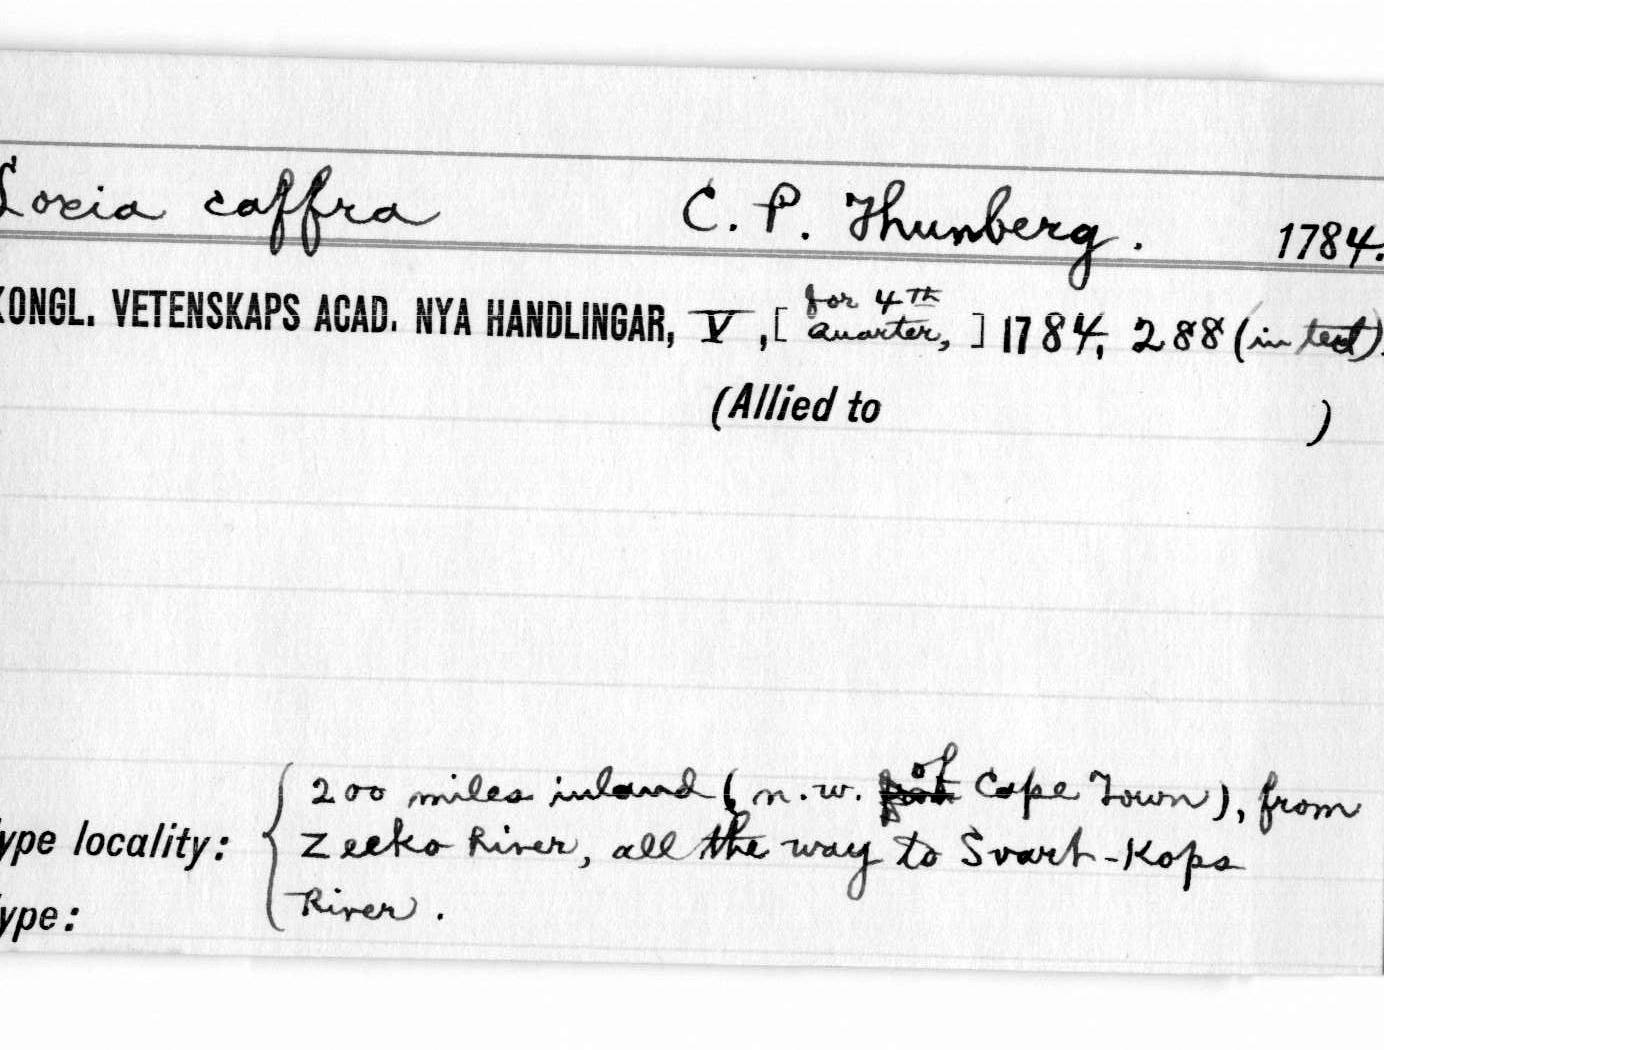 Loxia caffra C. P. Thunberg. 1784.
KONGL. VETENSKAPS ACAD. NYA HANDLINGAR, V, [for 4th quarter,] 1784, 288 (in text).
(Allied to )
200 miles inland (n.w. of Cape Town), from
ype locality: Zeeko River, all the way to Svart-Kops
ype: River.